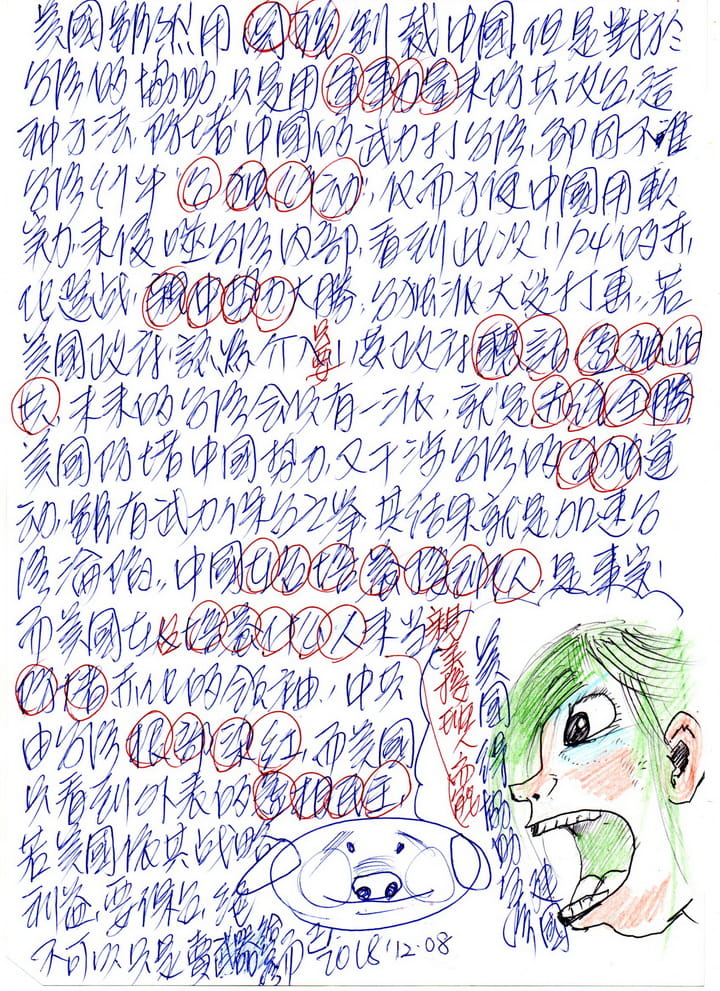 美國雖然用國務制裁中國,但是對於
台灣的協助,只是用軍事力量來防共攻台,這
种方法,防堵中國的武力打台灣,卻因不准
台灣行生"台獨行动",仅而方便中國用軟
實力,來侵吞台灣內部,看到此次11/24的赤
化选战,親中勢力大勝,台独派大受打击,若
美國政府,認為介入只要英政府聽話
共,未來的台灣会没有一派,就是赤統全勝
美國防堵中國勢力,又干涉台灣的台独運
动,雖有武力保台之舉,其結果就是加速台
灣淪陷,,中國在台培養接班人,是事实!
而美國在台培養什么人來当
防堵赤化的領袖,中共
由台灣根部染紅,而美國
只看到外表的民主
若美國依其战略
利益,要保台,絕
不可以只是賣武器給台灣而已 2018'12.08
親美接班人而已
美國須協助台灣建國